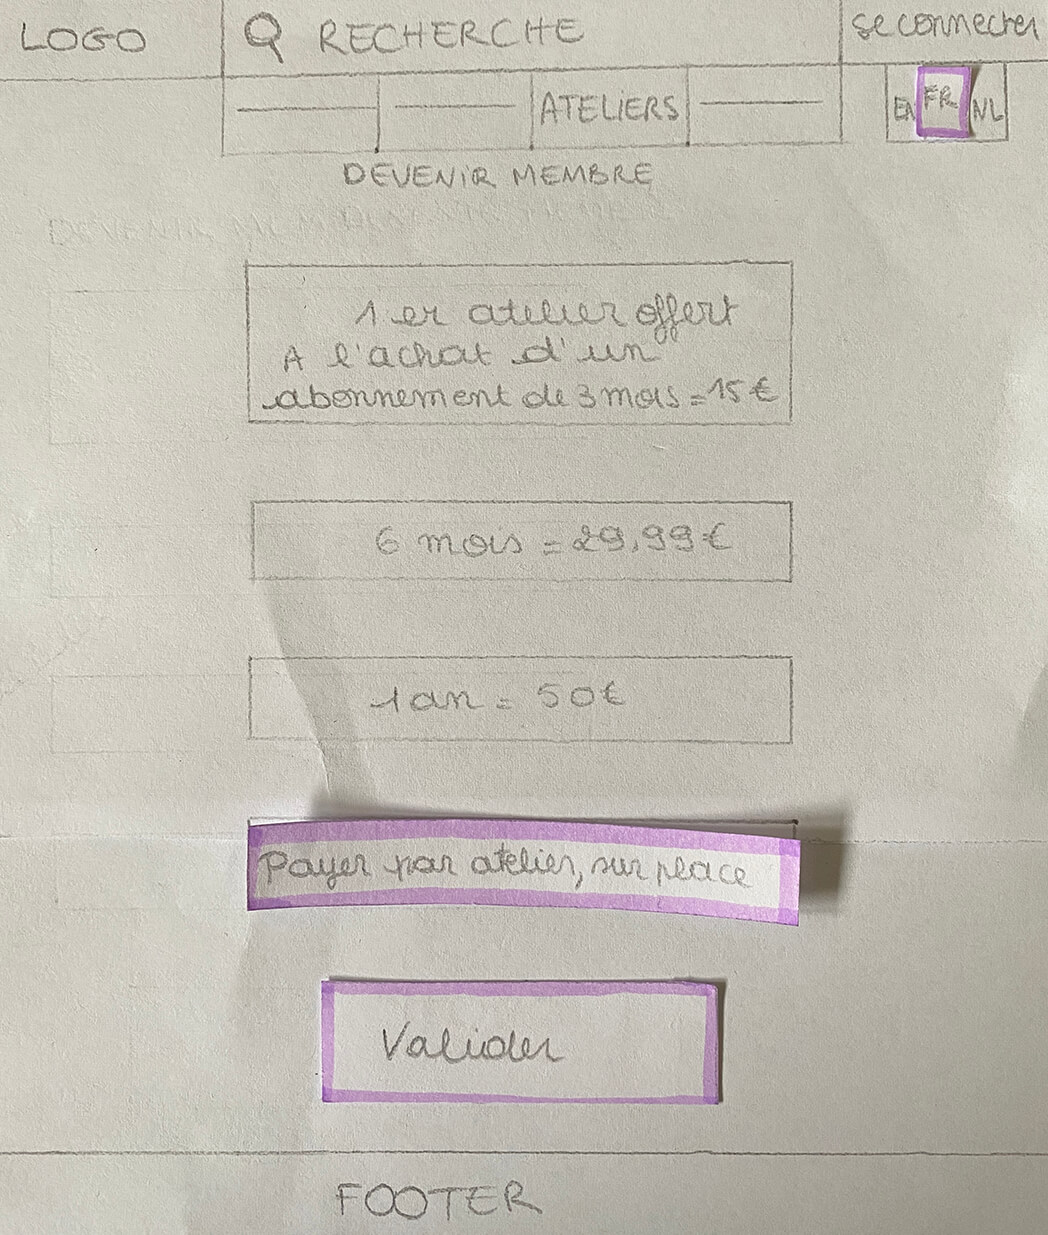 LOGO
RECHERCHE
se connecter
ATELIERS
EN FR NL
DEVENIR MEMBRE
1er atelier offert
A l'achat d'un
abonnement de 3 mois = 15 €
6 mois = 29,99 €
1 an = 50 €
Payer par atelier, sur place
Valider
FOOTER